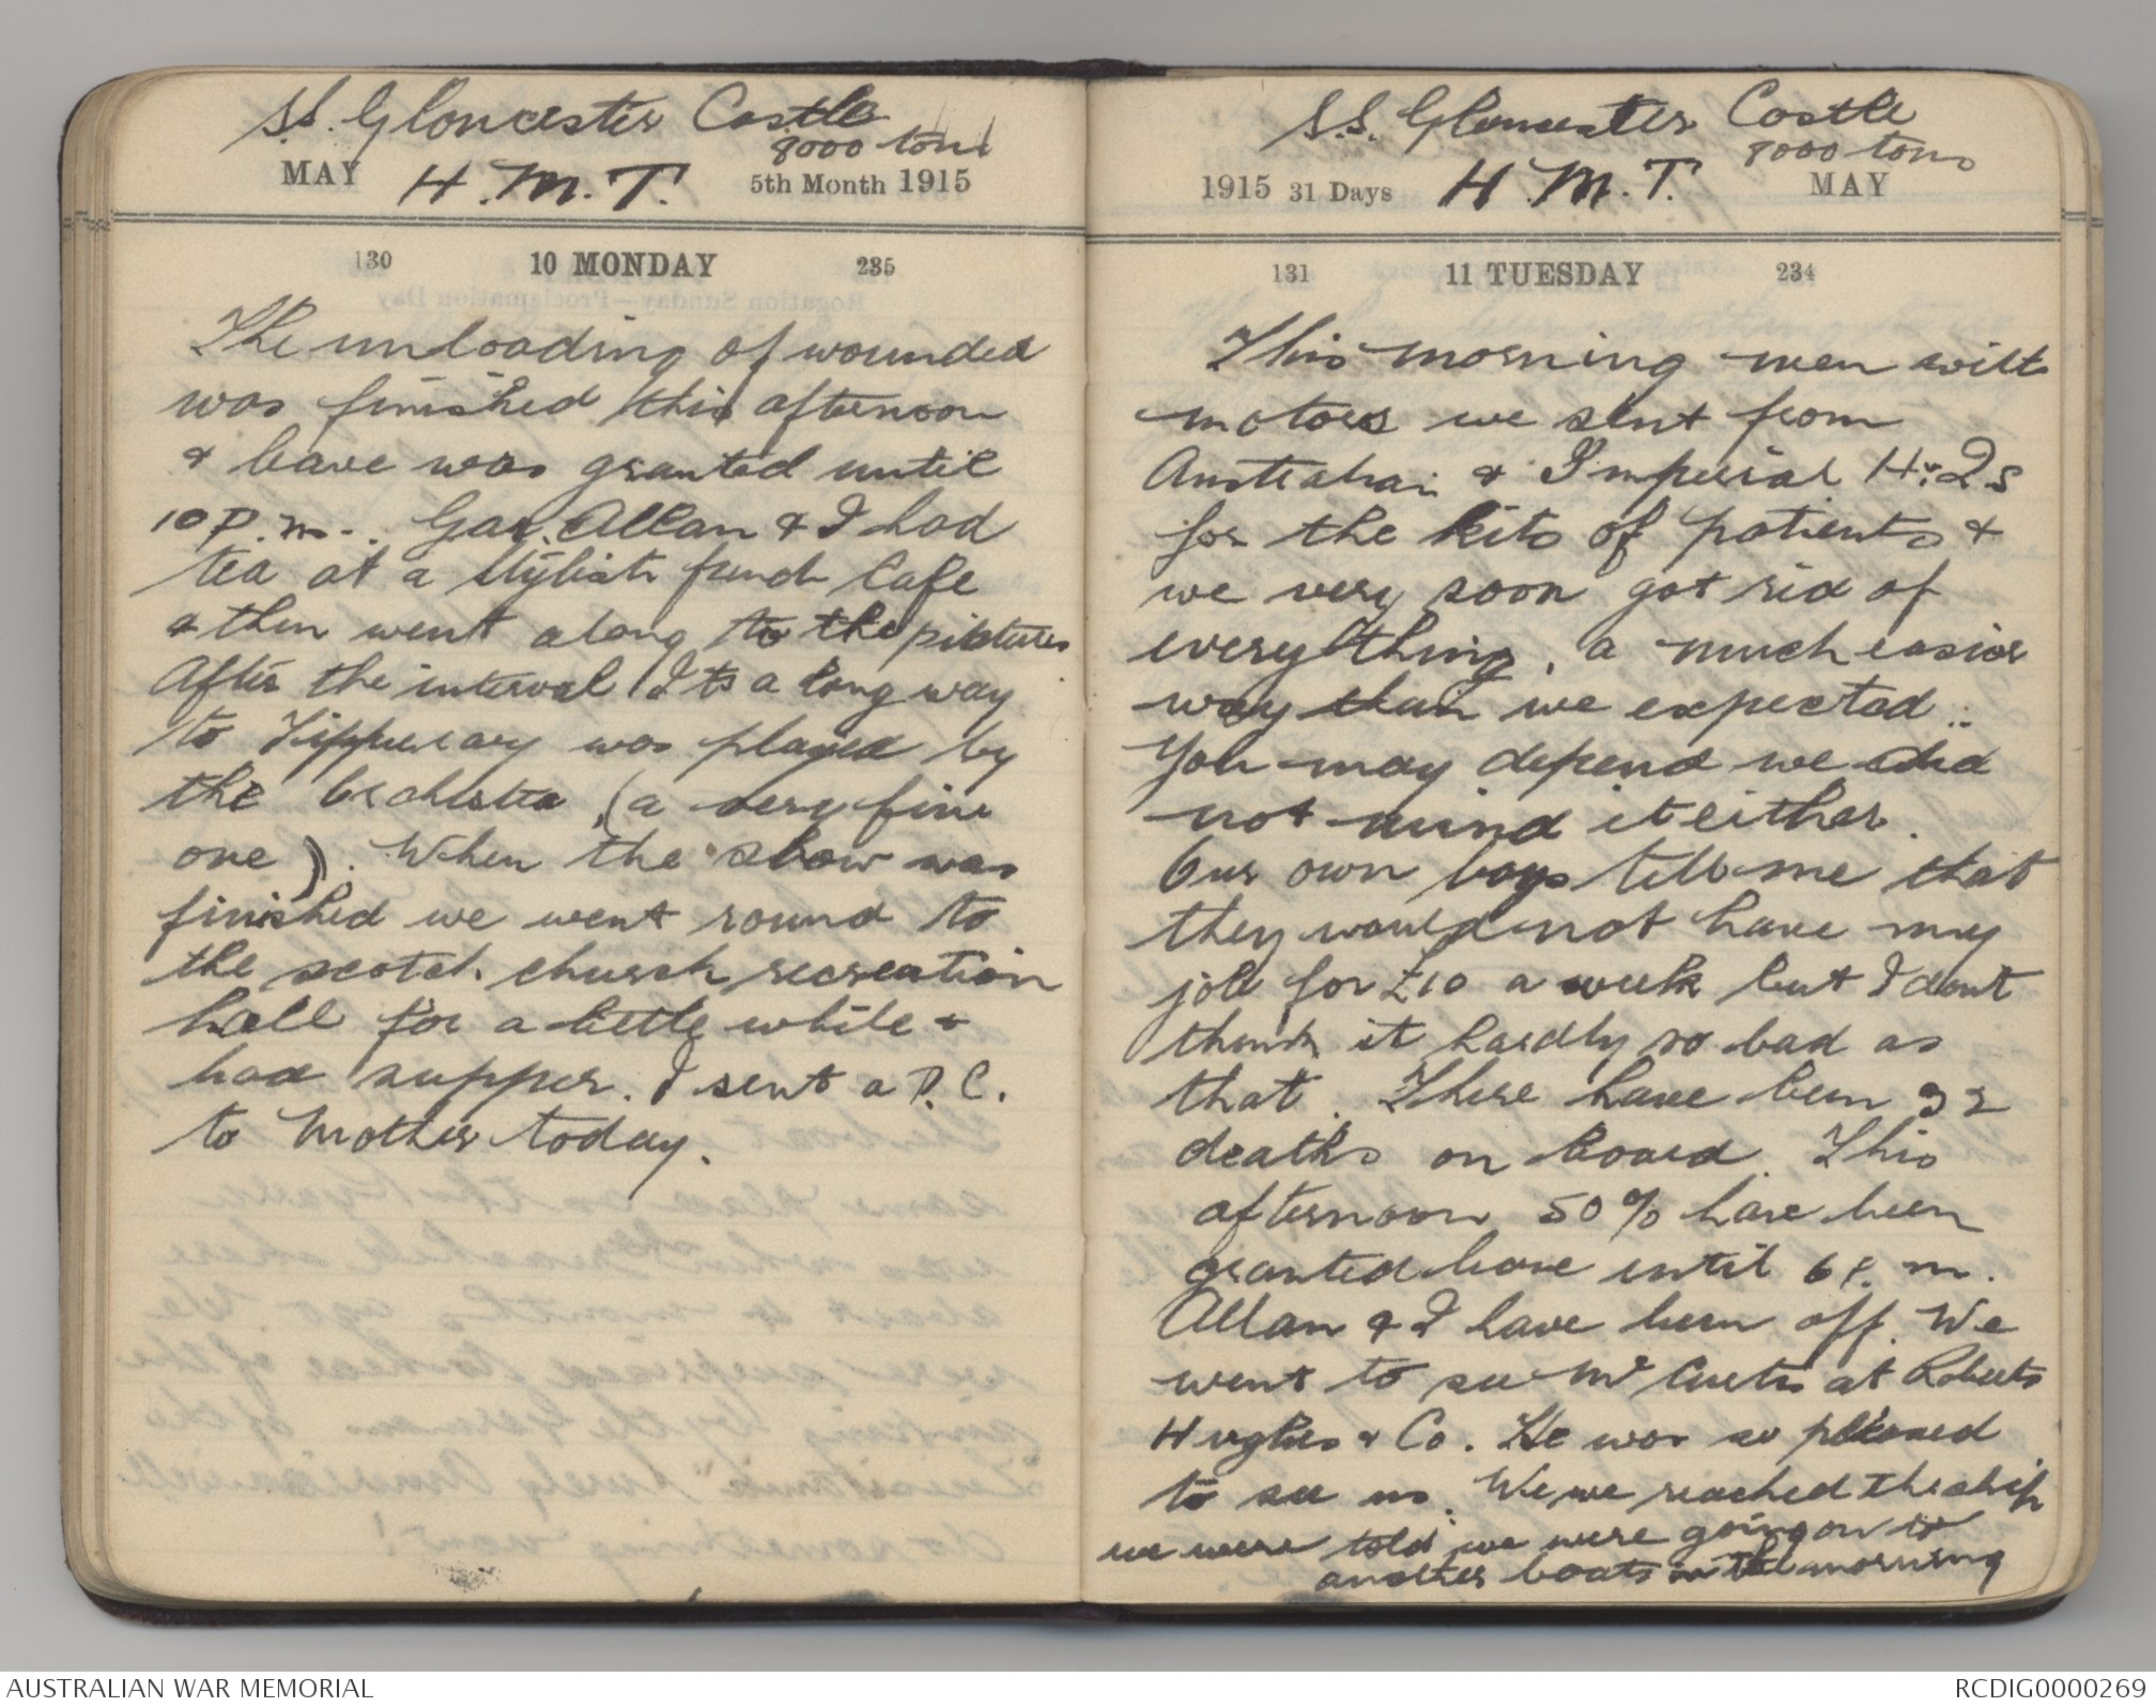 S.S. Gloucester Castle
8000 tons
MAY H.M.T. 5th Month 1915
130 10 MONDAY 235
The unloading of wounded
was finished this afternoon
& leave was granted until
10 P.m. . Allan & I had
tea at a stylish french Cafe
& then went along to the pictures
After the interval Its a long way
to Tipperary was played by
the Orchestra (a very fine
one). When the show was
finished we went round to
the scotch church recreation
hall for a little while &
had supper. I sent a P.C.
to Mother today.
S.S. Gloucester Castle
8000 tons
1915 31 Days H.M.T. MAY
131 11 TUESDAY 234
This morning men with
motors we sent from
Australian & Imperial H.Qs
for the kits of patients &
we very soon got rid of
everything, a much easier
way than we expected..
You may depend we did
not mind it either.
Our own boys tell me that
they would not have my
job for £10 a week but I dont
think it hardly so bad as
that. There have been 32
deaths on board. This
afternoon 50% have been
granted leave until 6 P.m.
Allan & I have been off. We
went to see Mr Curtis at Roberts
Hughes & Co. He was so pleased
to see us. We we reached the ship
we were told we were going on to
another boats in the morning
AUSTRALIAN WAR MEMORIAL
RCDIG0000269